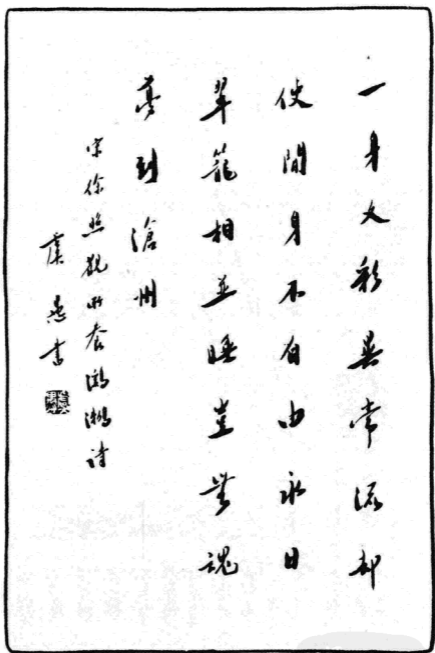 一身文彩異常流却
使間身不自由永日
翠籠相並睡豈無魂
夢到滄州
宋徐照觀所養鸂鶒詩
虞愚書